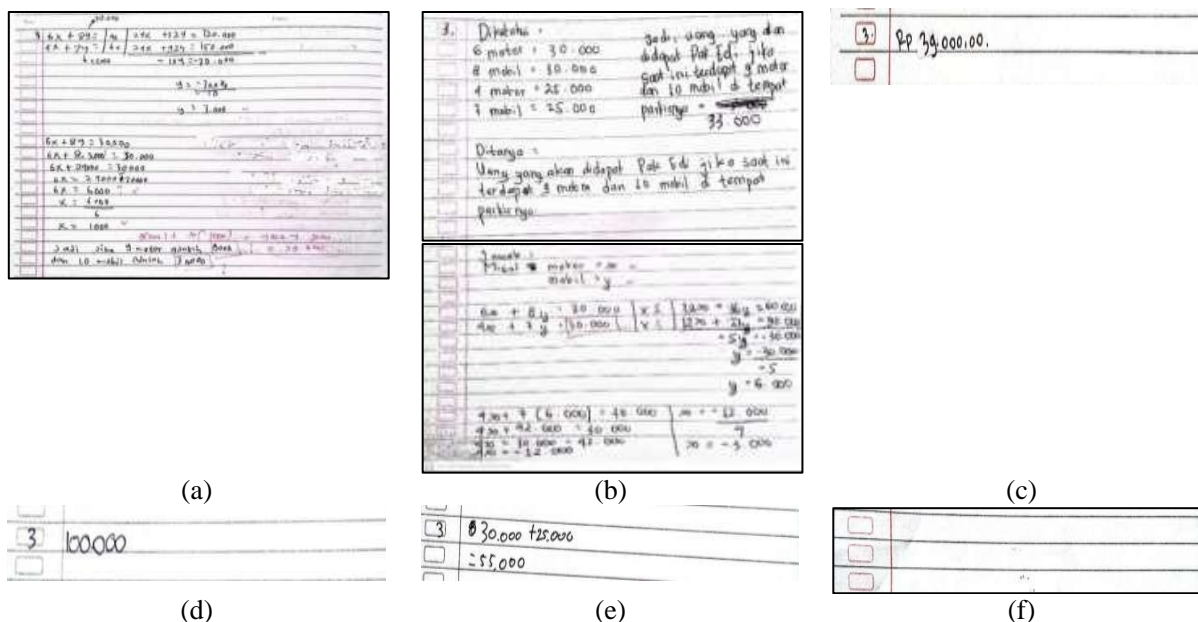 3 6x + 8y = 30.000 | 4 | 24x + 32y = 120.000
4x + 7y = | 6 | 24x + 42y = 150.000
- 10y = -30.000
y = 3.000
6x + 8y = 30.000
6x + 8. 3000 = 30.000
6x + 24000 = 30000
6x = 6000
x = 6000
6
x = 1000
Jadi, jika 9 motor adalah 9000
dan 10 mobil adalah
(a)
3. Diketahui :
6 motor = 30.000
8 mobil = 30.000
4 motor = 25.000
7 mobil = 25.000
Jadi, uang yang dan
didapat Pak Edi jika
saat ini terdapat 9 motor
dan 10 mobil di tempat
parkirnya =
33.000
Ditanya :
Uang yang akan didapat Pak Edi jika saat ini
terdapat 9 motor dan 10 mobil di tempat
parkirnya
Jawab :
Misal motor = x
mobil = y
6x + 8y = 30.000 | x 2 | 12x + 16y = 60.000
4x + 7y = 30.000 | x 3 | 12x + 21y = 90.000
-5y = -30.000
y = -30.000
-5
y = 6.000
4x + 7 (6.000) = 30.000
4x + 42.000 = 30.000
4x = 30.000 - 42.000
4x = -12.000
x = -12.000
4
x = -3.000
(b)
3. Rp 39.000,00.
(c)
3 100000
(d)
3 30.000 + 25.000
= 55.000
(e)
(f)